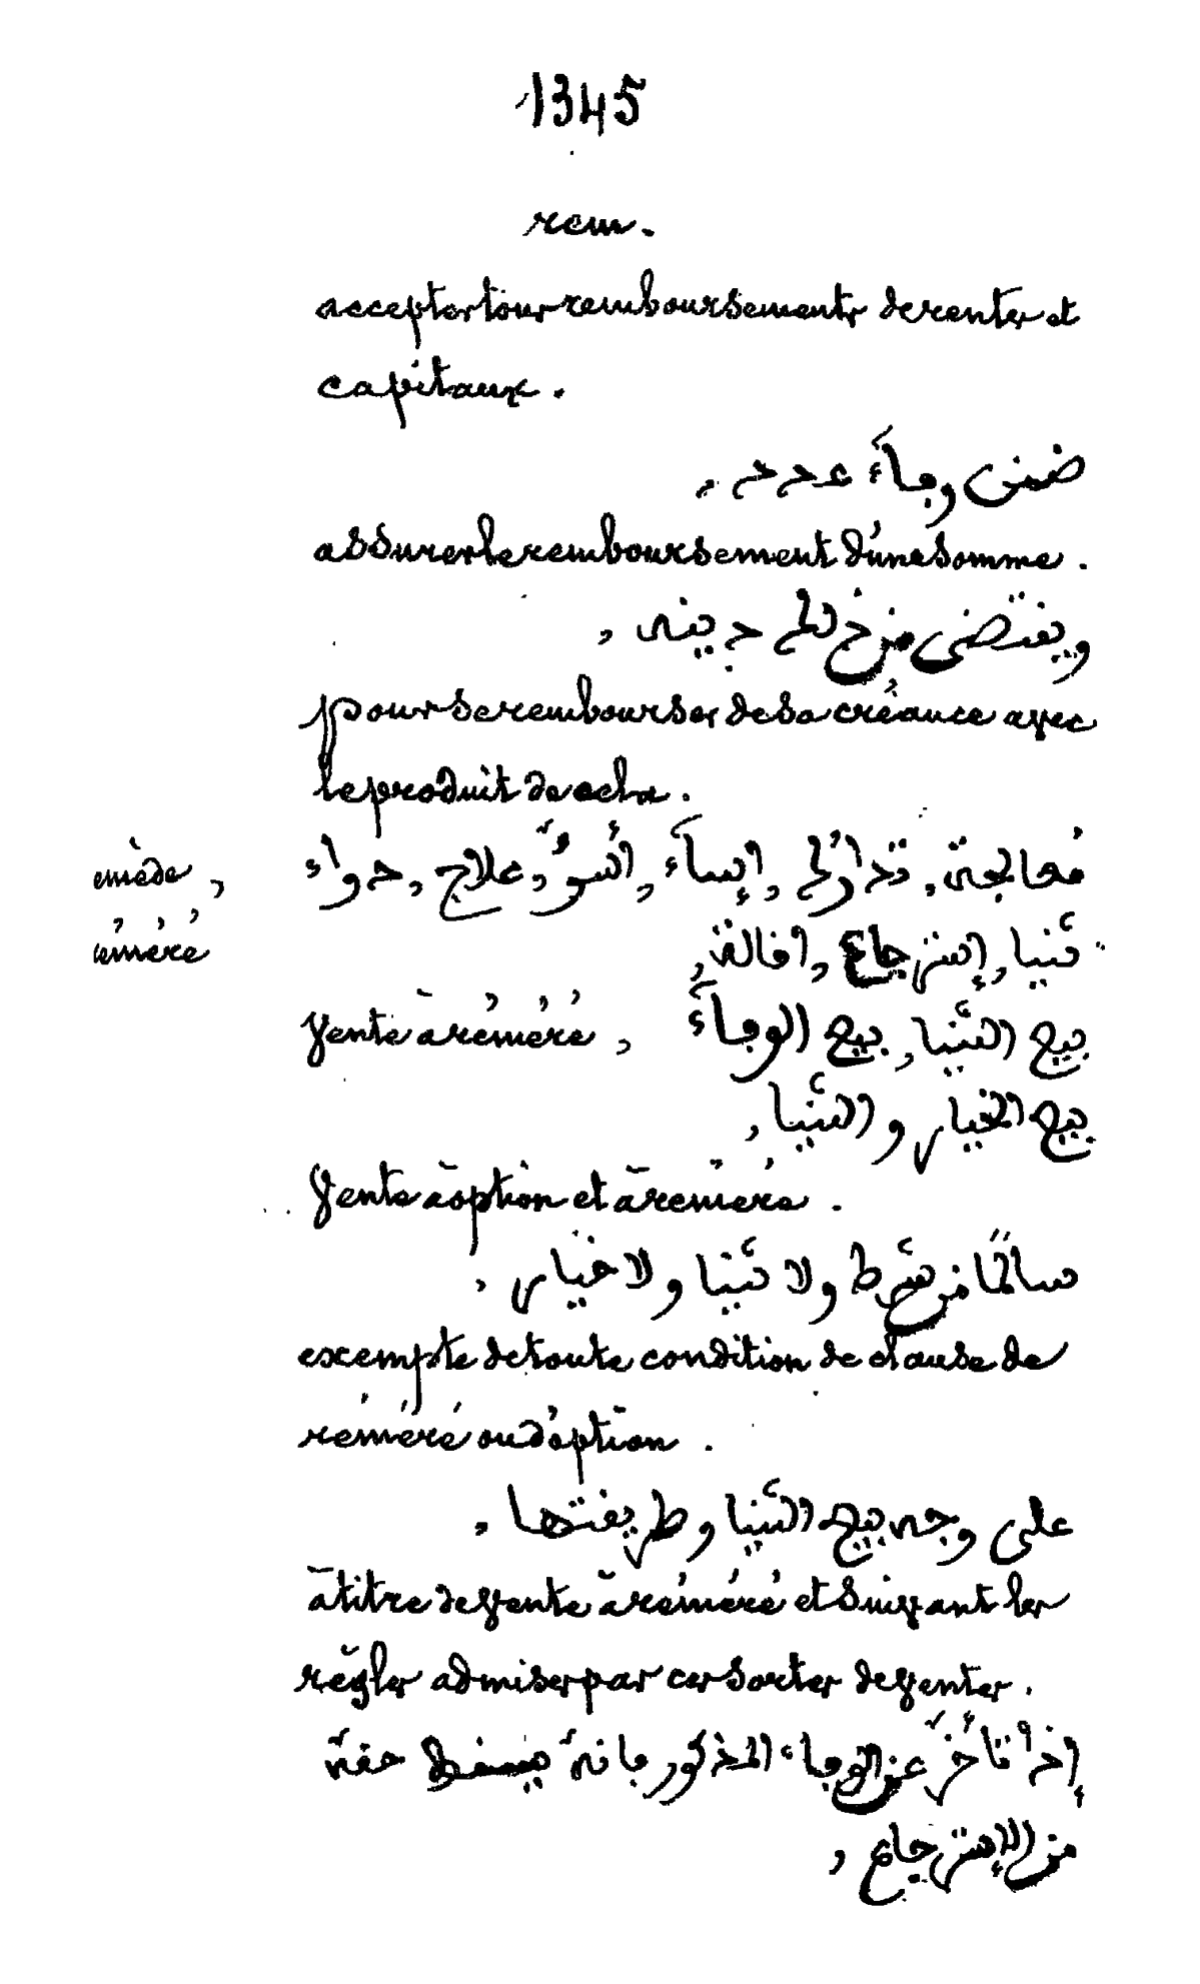 1345
rem.
accepter tous remboursements de rentes et
capitaux.
ضمن وفاء عدد,
assurer le remboursement d'une somme.
ويقتضى من ذلك دينه,
pour se rembourser de sa créance avec
le produit de cela.
emède, معالجة, تداوٍ, إساء, أسو, علاج, دواء
éméré ثنيا, إسترجاع, اقالة,
Vente à réméré, بيع الثنيا, بيع الوفاء
بيع الخيار والثنيا,
Vente à option et à réméré.
سالمًا من شرط ولا ثنيا ولا خيار,
exempte de toute condition de clause de
réméré ou d'option.
على وجه بيع الثنيا وطريقتها,
à titre de vente à réméré et suivant les
règles admises par ces sortes de ventes.
إذا تأخر عن الوفاء المذكور فانه يسقط حقه
من الإسترجاع,